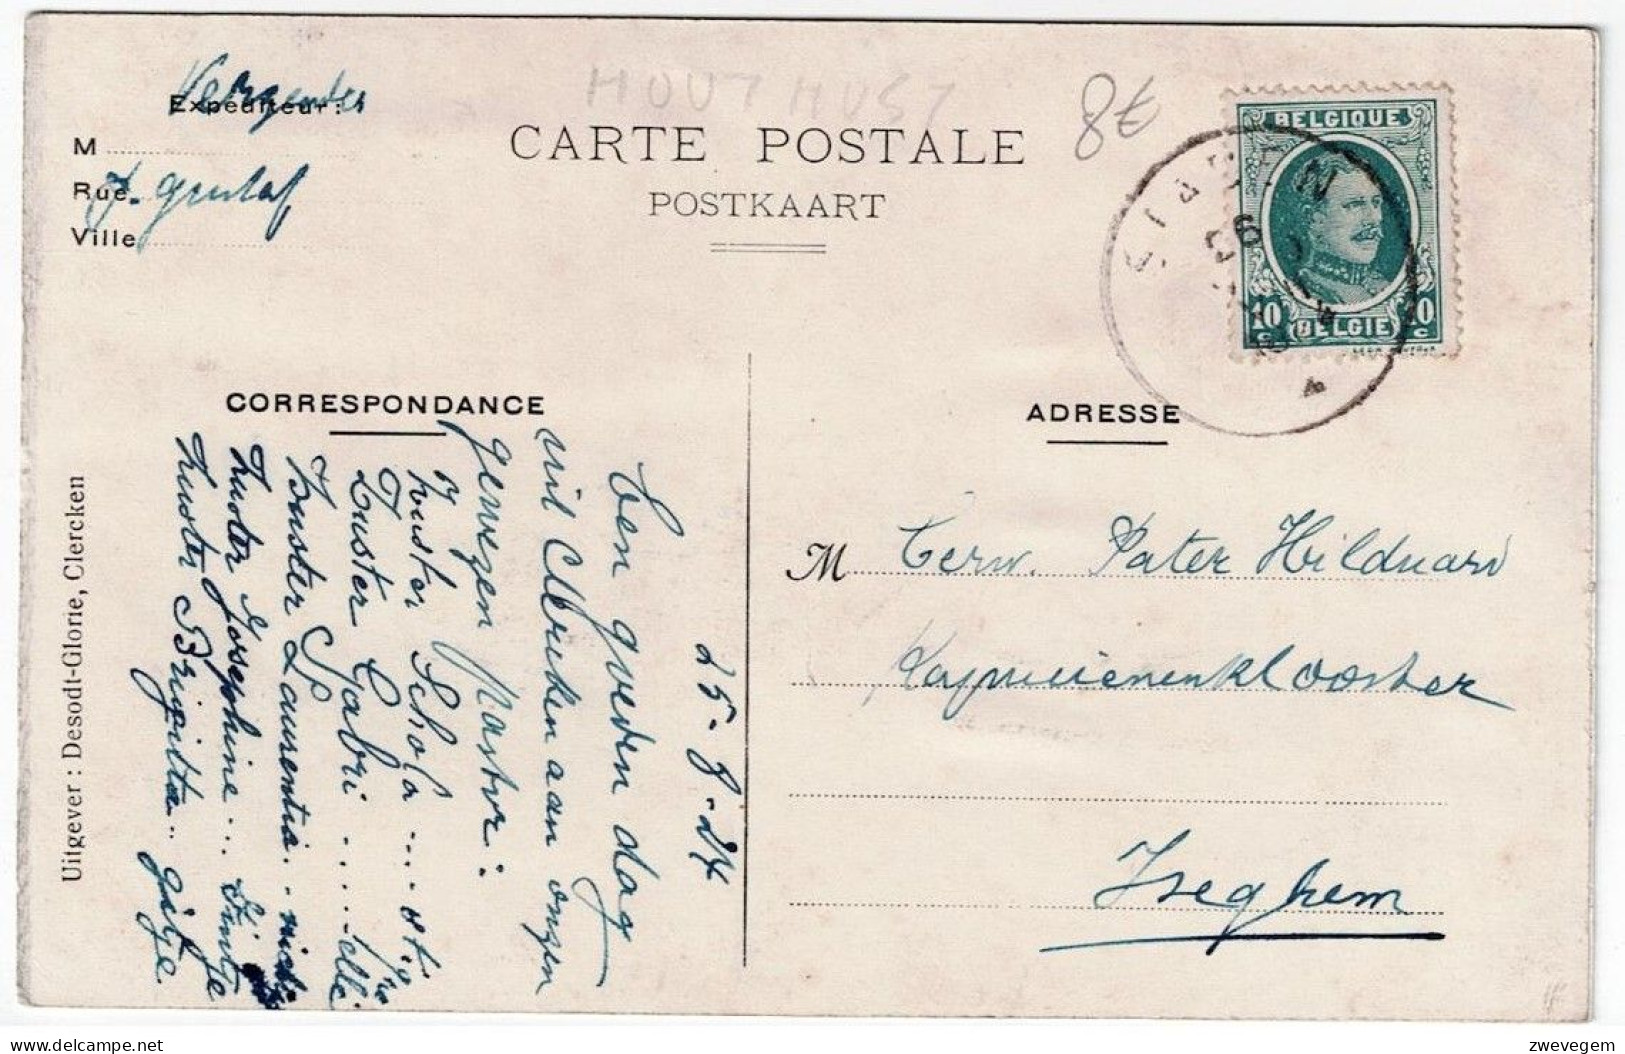 HOUTHUST
8€
Expéditeur:
M
Rue
Ville
CARTE POSTALE
POSTKAART
BELGIQUE
STADEN
10 10
c c
BELGIE
CORRESPONDANCE
ADRESSE
Uitgever : Desodt-Glorie, Clercken
25-8-24
Een goeden dag
uit Clercken aan onzen
gewezen Pastor:
Zuster Schola...
Zuster Gabri.....elle
Zuster Laurentia..
Zuster Josephine...
Zuster Brigitta..
M Eerw. Pater Hilduard
Kapucienenklooster
Iseghem
delcampe.net
zwevegem